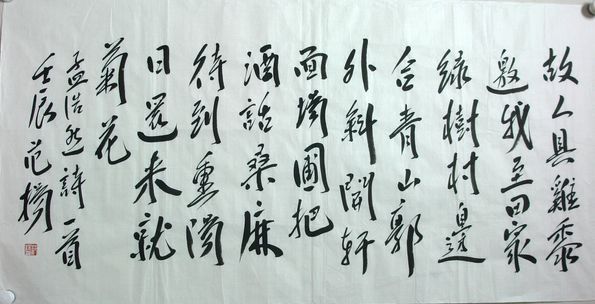 故人具雞黍
邀我至田家
綠樹村邊
合青山郭
外斜開軒
面場圃把
酒話桑麻
待到重陽
日還來就
菊花
孟浩然詩一首
壬辰范揚